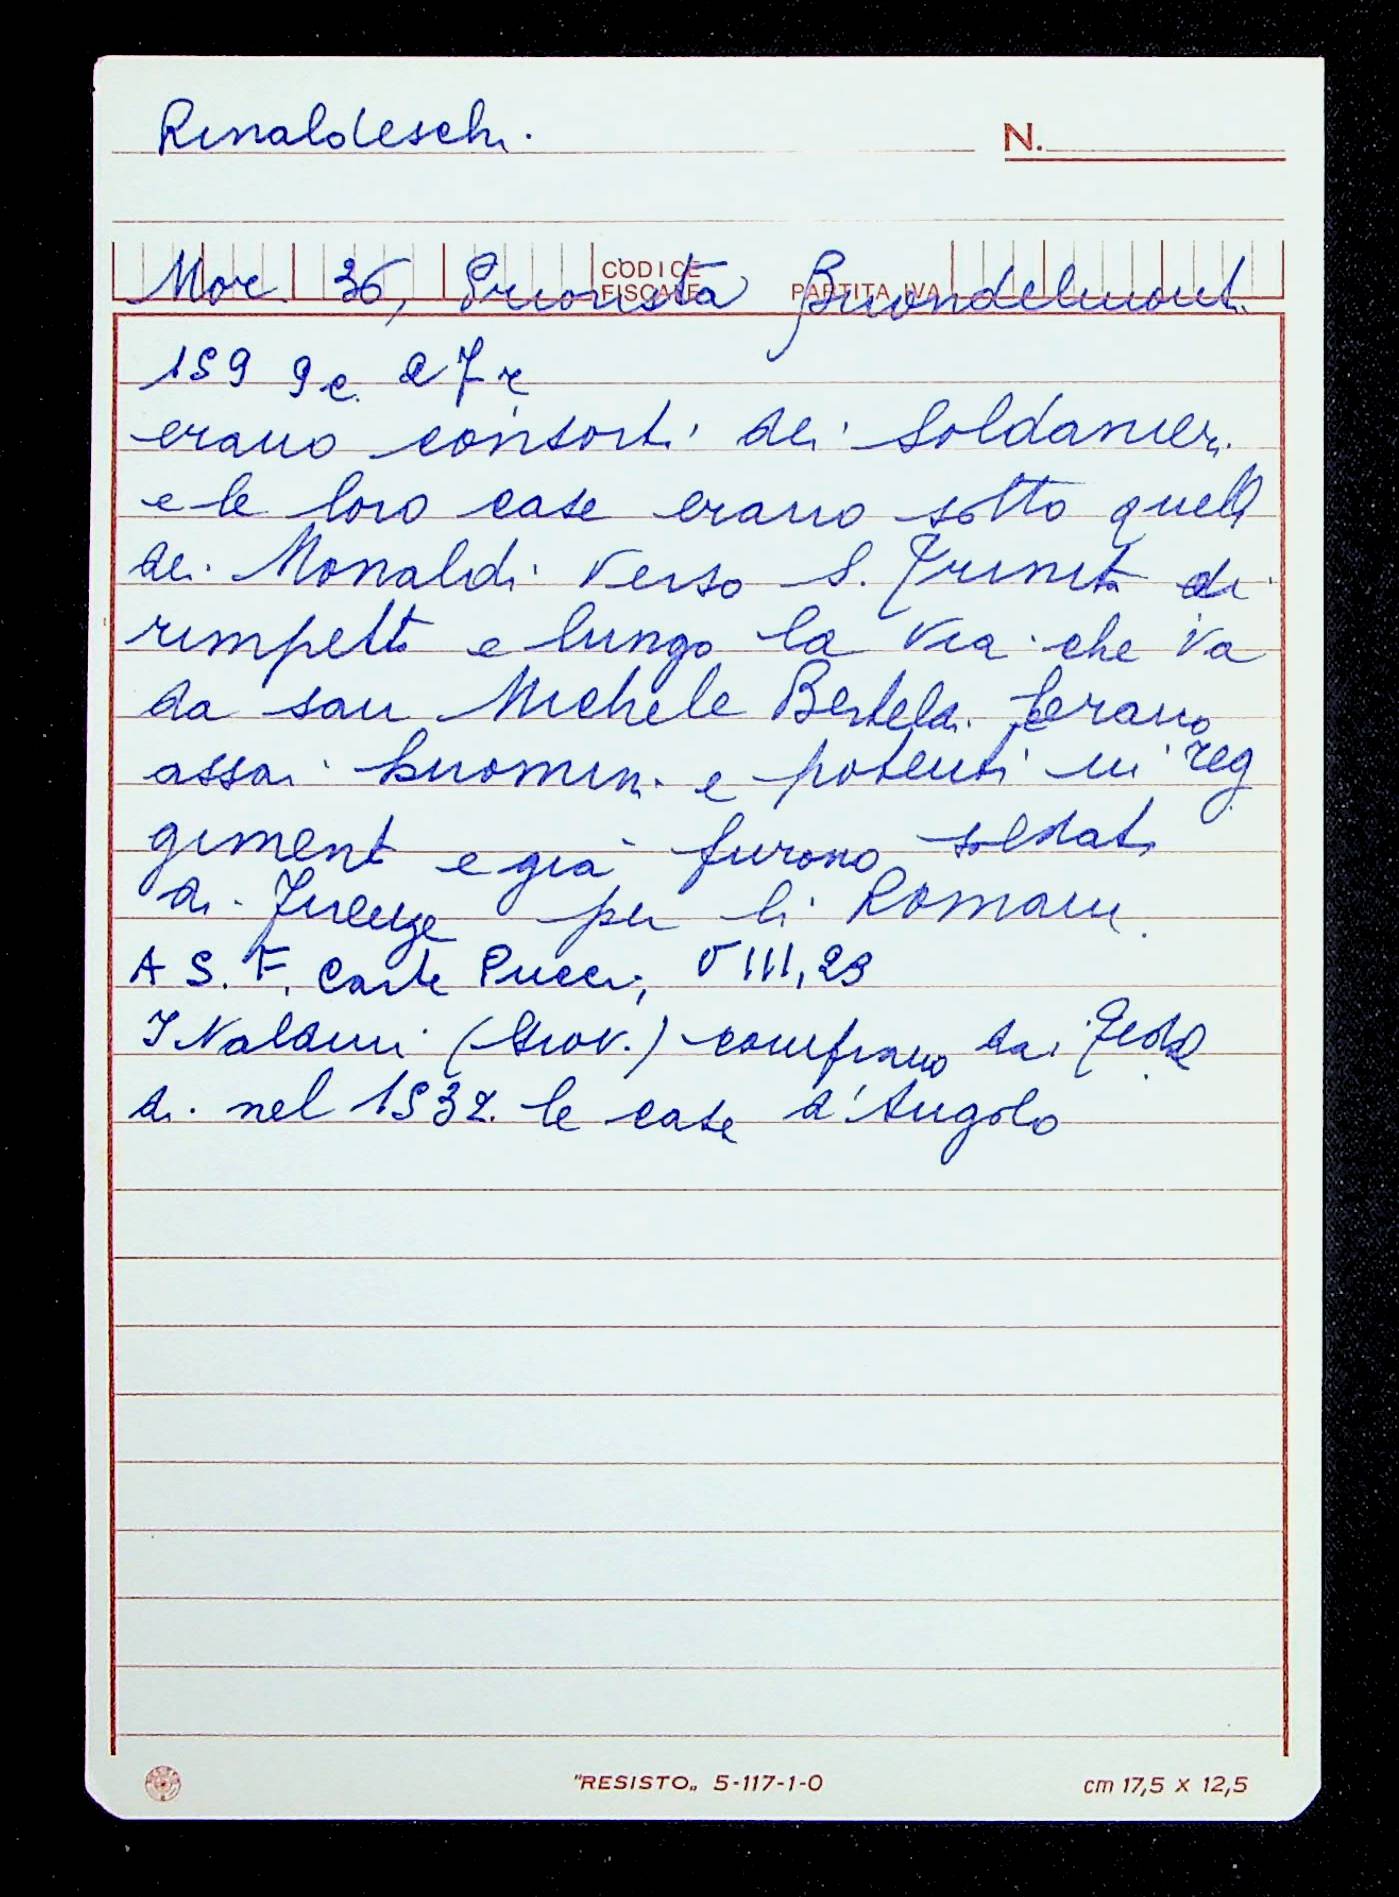 Rinaldeschi.
N.
CODICE FISCALE PARTITA IVA
Mor. 36, Priorista Buondelmonti
1599 c. 27r
erano consorti dei Soldanieri
e le loro case erano sotto quelle
dei Monaldi verso S. Trinita di
rimpetto e lungo la via che va
da san Michele Berteldi erano
assai huomini e potenti in reg
gimento e già furono soldati
di Firenze per li Romani.
A S. F. Carte Pucci, VIII, 29
I Naldini (Strov.) comprano dai
di nel 1532 le case d'Angolo
"RESISTO„ 5-117-1-0
cm 17,5 x 12,5